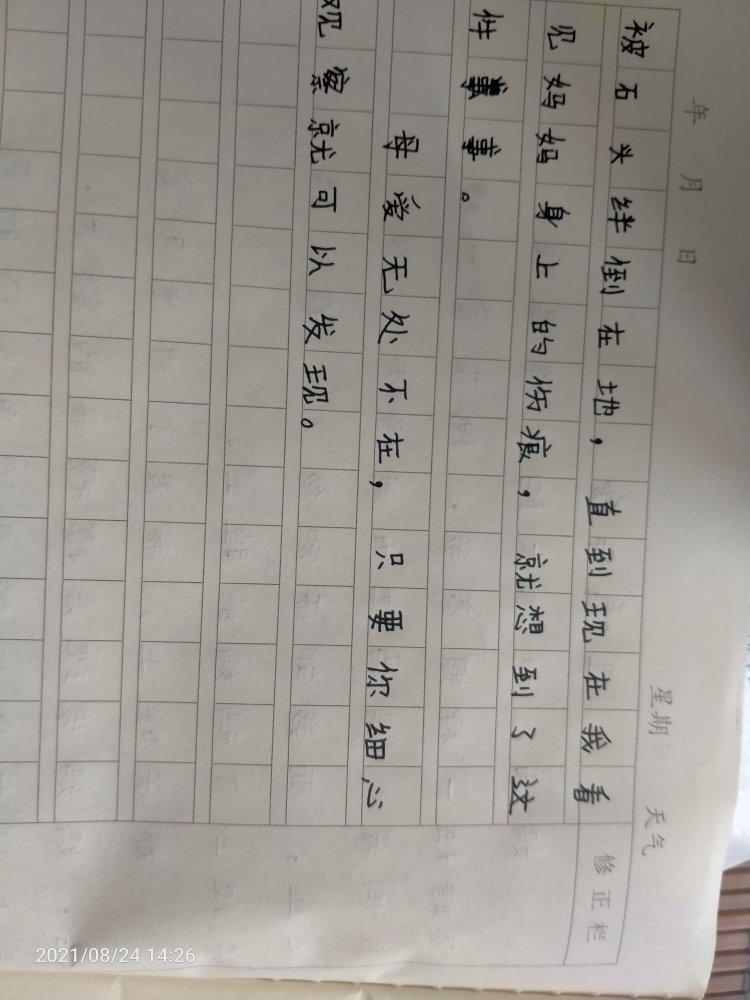 年 月 日 星期 天气
修正栏
被石头绊倒在地，直到现在我看
见妈妈身上的伤痕，就想到了这
件事。
母爱无处不在，只要你细心
观察就可以发现。
2021/08/24 14:26